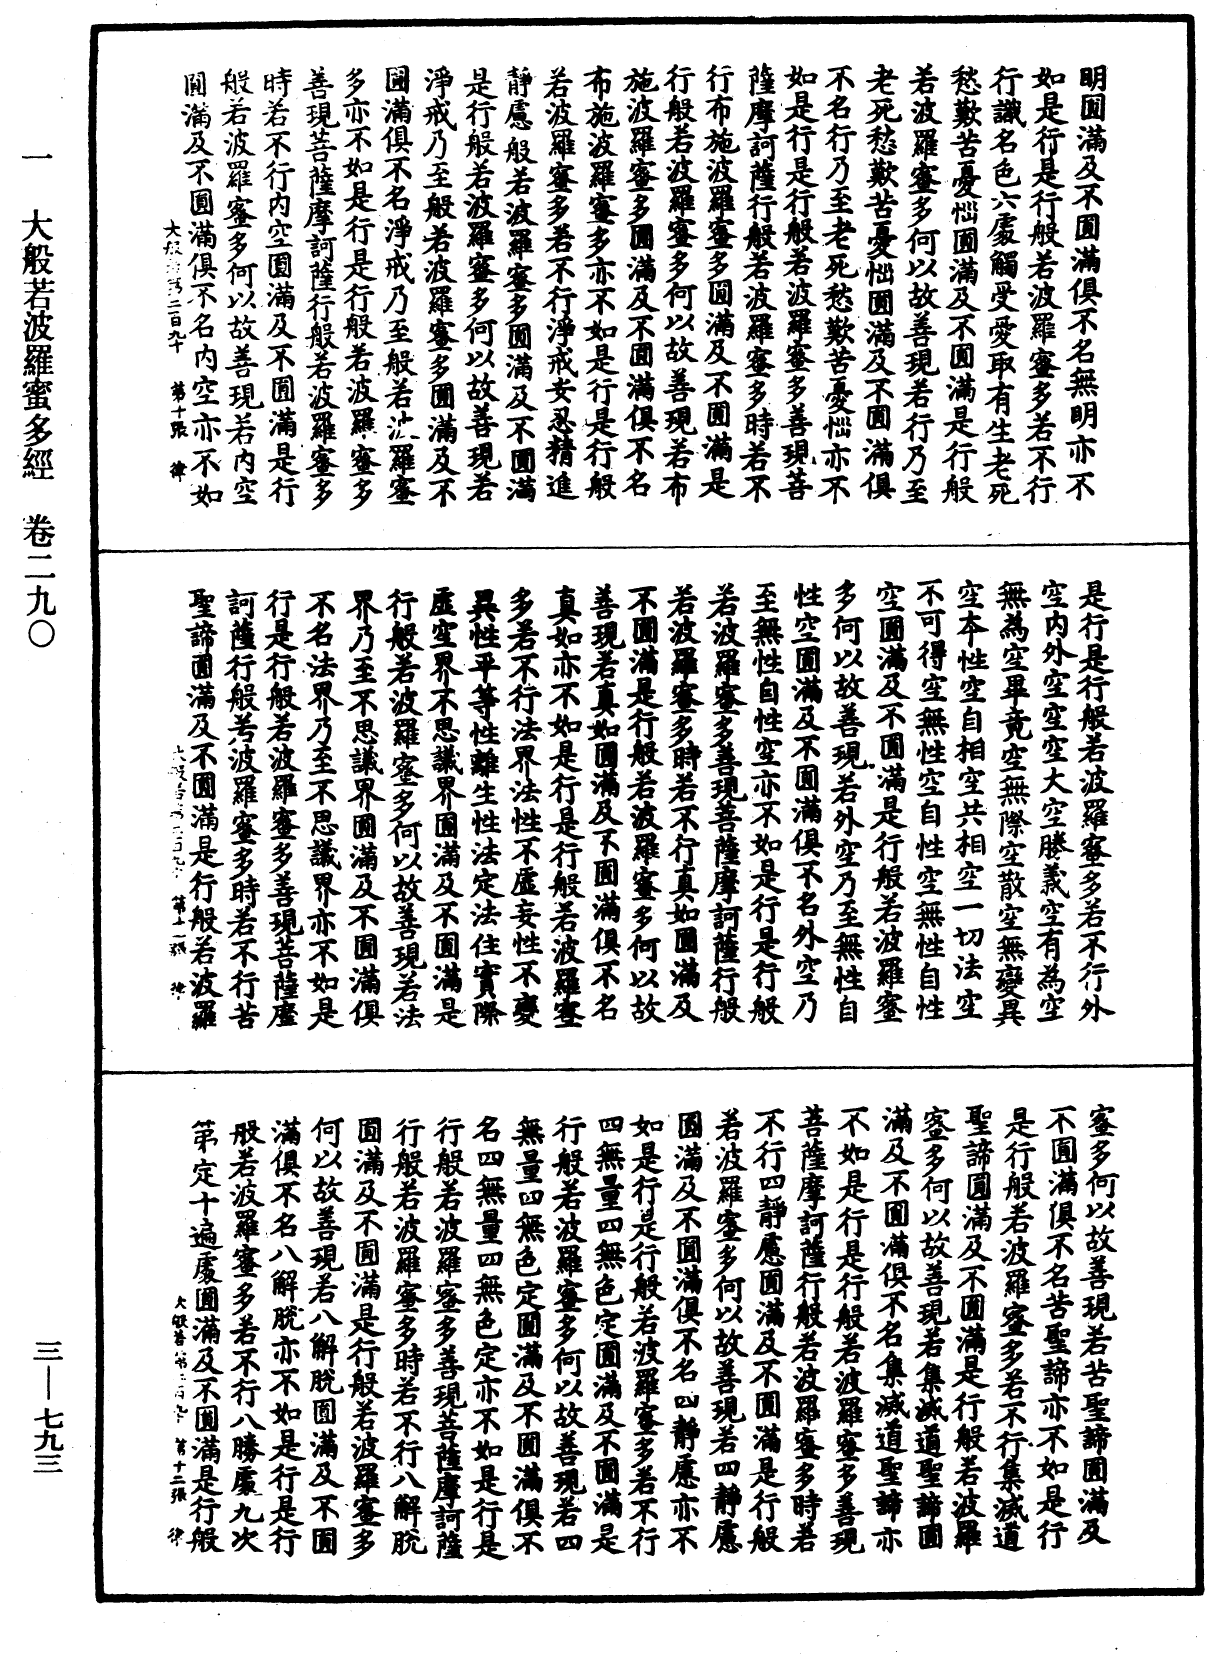 明圓滿及不圓滿俱不名無明亦不
如是行是行般若波羅蜜多若不行
行識名色六處觸受愛取有生老死
愁歎苦憂惱圓滿及不圓滿是行般
若波羅蜜多何以故善現若行乃至
老死愁歎苦憂惱圓滿及不圓滿俱
不名行乃至老死愁歎苦憂惱亦不
如是行是行般若波羅蜜多善現菩
薩摩訶薩行般若波羅蜜多時若不
行布施波羅蜜多圓滿及不圓滿是
行般若波羅蜜多何以故善現若布
施波羅蜜多圓滿及不圓滿俱不名
布施波羅蜜多亦不如是行是行般
若波羅蜜多若不行淨戒安忍精進
靜慮般若波羅蜜多圓滿及不圓滿
是行般若波羅蜜多何以故善現若
淨戒乃至般若波羅蜜多圓滿及不
圓滿俱不名淨戒乃至般若波羅蜜
多亦不如是行是行般若波羅蜜多
善現菩薩摩訶薩行般若波羅蜜多
時若不行內空圓滿及不圓滿是行
般若波羅蜜多何以故善現若內空
圓滿及不圓滿俱不名內空亦不如
大般若第二百九十 第十張 律
是行是行般若波羅蜜多若不行外
空內外空空空大空勝義空有為空
無為空畢竟空無際空散空無變異
空本性空自相空共相空一切法空
不可得空無性空自性空無性自性
空圓滿及不圓滿是行般若波羅蜜
多何以故善現若外空乃至無性自
性空圓滿及不圓滿俱不名外空乃
至無性自性空亦不如是行是行般
若波羅蜜多善現菩薩摩訶薩行般
若波羅蜜多時若不行真如圓滿及
不圓滿是行般若波羅蜜多何以故
善現若真如圓滿及不圓滿俱不名
真如亦不如是行是行般若波羅蜜
多若不行法界法性不虛妄性不變
異性平等性離生性法定法住實際
虛空界不思議界圓滿及不圓滿是
行般若波羅蜜多何以故善現若法
界乃至不思議界圓滿及不圓滿俱
不名法界乃至不思議界亦不如是
行是行般若波羅蜜多善現菩薩摩
訶薩行般若波羅蜜多時若不行苦
聖諦圓滿及不圓滿是行般若波羅
大般若第二百九十 第十一張 律
蜜多何以故善現若苦聖諦圓滿及
不圓滿俱不名苦聖諦亦不如是行
是行般若波羅蜜多若不行集滅道
聖諦圓滿及不圓滿是行般若波羅
蜜多何以故善現若集滅道聖諦圓
滿及不圓滿俱不名集滅道聖諦亦
不如是行是行般若波羅蜜多善現
菩薩摩訶薩行般若波羅蜜多時若
不行四靜慮圓滿及不圓滿是行般
若波羅蜜多何以故善現若四靜慮
圓滿及不圓滿俱不名四靜慮亦不
如是行是行般若波羅蜜多若不行
四無量四無色定圓滿及不圓滿是
行般若波羅蜜多何以故善現若四
無量四無色定圓滿及不圓滿俱不
名四無量四無色定亦不如是行是
行般若波羅蜜多善現菩薩摩訶薩
行般若波羅蜜多時若不行八解脫
圓滿及不圓滿是行般若波羅蜜多
何以故善現若八解脫圓滿及不圓
滿俱不名八解脫亦不如是行是行
般若波羅蜜多若不行八勝處九次
第定十遍處圓滿及不圓滿是行般
大般若第二百九十 第十二張 律
一 大般若波羅蜜多經 卷二九〇
三—七九三